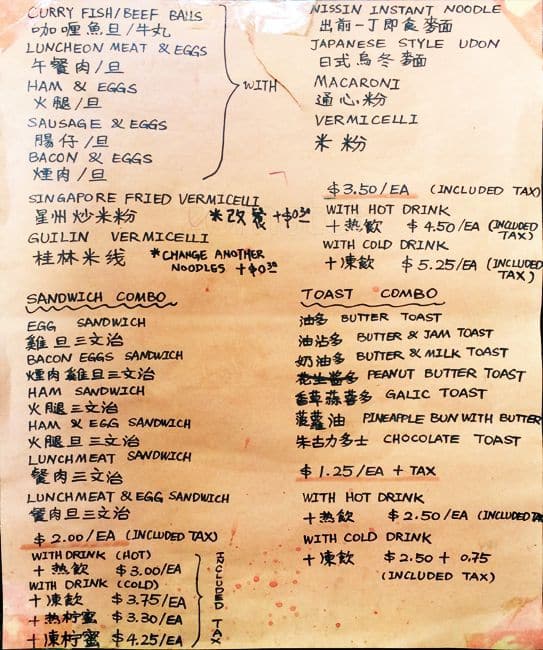 CURRY FISH/BEEF BALLS
咖喱魚旦/牛丸
LUNCHEON MEAT & EGGS
午餐肉/旦
HAM & EGGS
火腿/旦
SAUSAGE & EGGS
腸仔/旦
BACON & EGGS
煙肉/旦
WITH
NISSIN INSTANT NOODLE
出前一丁即食麵
JAPANESE STYLE UDON
日式烏冬麵
MACARONI
通心粉
VERMICELLI
米粉
SINGAPORE FRIED VERMICELLI
星州炒米粉 *改 +$0.30
GUILIN VERMICELLI
桂林米线 *CHANGE ANOTHER
NOODLES +$0.30
$3.50/EA (INCLUDED TAX)
WITH HOT DRINK
+热飲 $4.50/EA (INCLUDED TAX)
WITH COLD DRINK
+凍飲 $5.25/EA (INCLUDED TAX)
SANDWICH COMBO
EGG SANDWICH
雞旦三文治
BACON EGGS SANDWICH
煙肉雞旦三文治
HAM SANDWICH
火腿三文治
HAM & EGG SANDWICH
火腿旦三文治
LUNCHMEAT SANDWICH
餐肉三文治
LUNCHMEAT & EGG SANDWICH
餐肉旦三文治
$2.00/EA (INCLUDED TAX)
WITH DRINK (HOT)
+热飲 $3.00/EA
WITH DRINK (COLD)
+凍飲 $3.75/EA
+热柠蜜 $3.30/EA
+凍柠蜜 $4.25/EA
INCLUDED TAX
TOAST COMBO
油多 BUTTER TOAST
油沾多 BUTTER & JAM TOAST
奶油多 BUTTER & MILK TOAST
花生醬多 PEANUT BUTTER TOAST
香草蒜蓉多 GALIC TOAST
菠蘿油 PINEAPPLE BUN WITH BUTTER
朱古力多士 CHOCOLATE TOAST
$1.25/EA + TAX
WITH HOT DRINK
+热飲 $2.50/EA (INCLUDED TAX
WITH COLD DRINK
+凍飲 $2.50 + 0.75
(INCLUDED TAX)